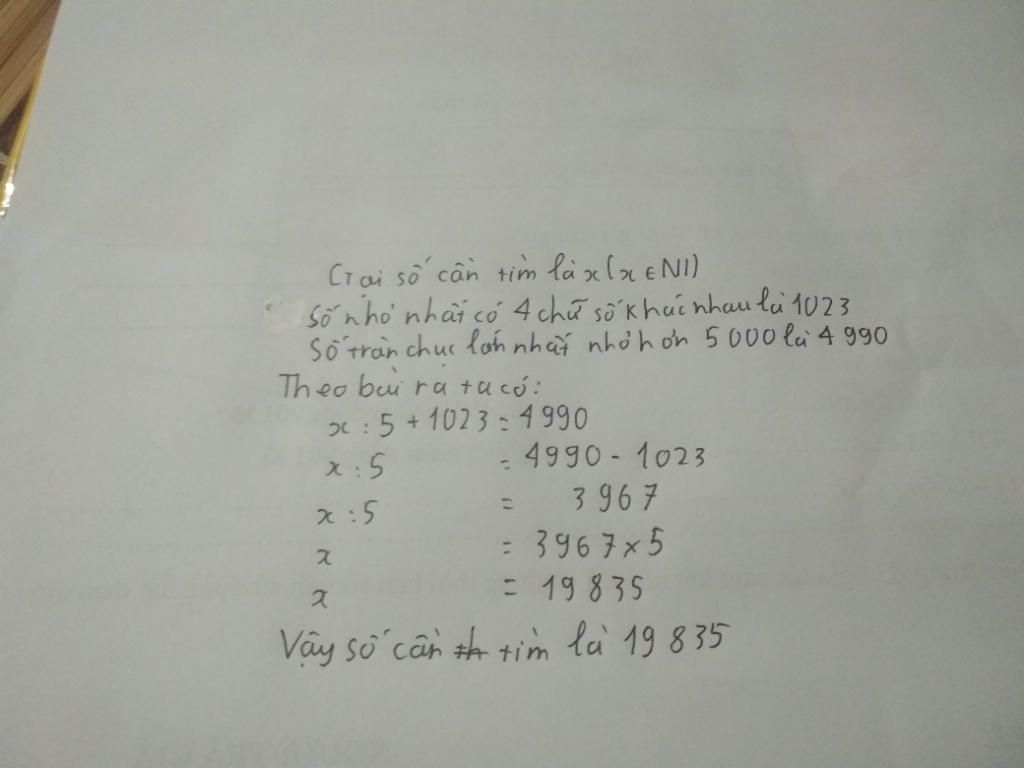 Gọi số cần tìm là x (x ∈ N)
Số nhỏ nhất có 4 chữ số khác nhau là 1023
Số tròn chục lớn nhất nhỏ hơn 5 000 là 4 990
Theo bài ra ta có:
x : 5 + 1023 = 4990
x : 5 = 4990 - 1023
x : 5 = 3967
x = 3967 x 5
x = 19 835
Vậy số cần tìm là 19 835